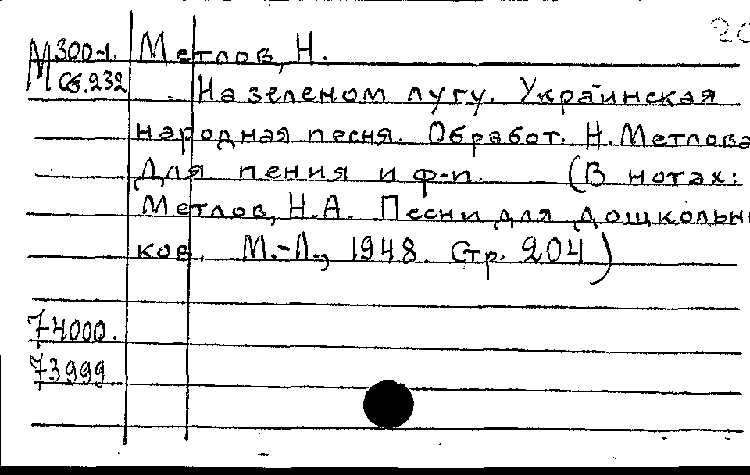 20
М 300-1. Метлов, Н.
М Сб.232 На зеленом лугу. Украинская
народная песня. Обработ. Н. Метлова
Для пения и ф-п. (В нотах:
Метлов, Н.А. Песни для дошкольни
ков. М.-Л., 1948. Стр. 204)
74000.
73999